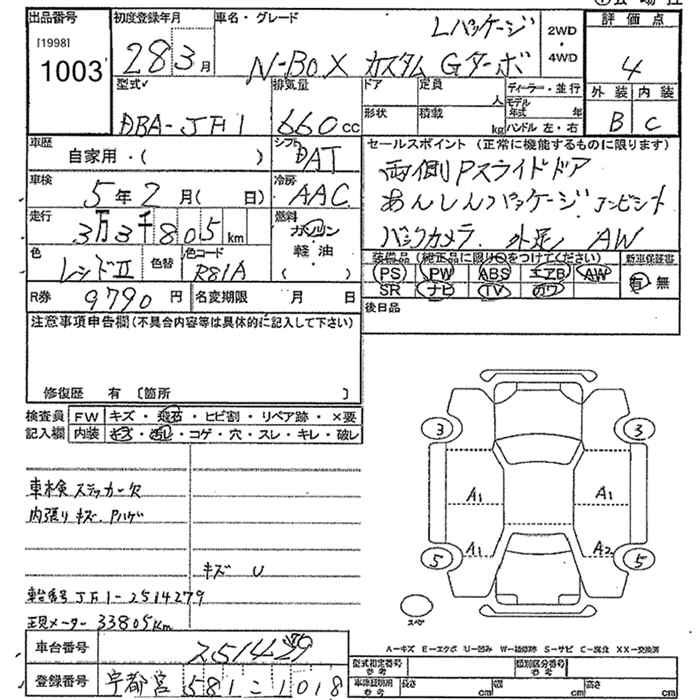 出品番号 初度登録年月 車名・グレード 評価点
[1998] Lパッケージ 2WD
1003 28 3月 N-BOX カスタム Gターボ ・4WD 4
型式 排気量 ドア 定員 人 ディーラー・並行 外装 内装
DBA-JF1 660cc 形状 積載 kg モデル年式 年 ハンドル 左・右 B C
車歴 自家用・( ) シフト DAT セールスポイント (正常に機能するものに限ります)
両側Pスライドドア
車検 5年2月( 日) 冷房 AAC あんしんパッケージ コンビシート
走行 3万3千805km 燃料 ガソリン バックカメラ 外足し AW
色 レッドII 色替 色コード R81A 軽油 ( )
装備品(純正品に限り○をつけてください) 新車保証書
PS PW ABS エアB AW 有 無
SR ナビ TV カワ
R券 9790円 名変期限 月 日 後日品
注意事項申告欄(不具合内容等は具体的に記入して下さい)
修復歴 有 〔箇所 〕
検査員 FW キズ・飛石・ヒビ割・リペア跡・×要
記入欄 内装 キズ・汚れ・コゲ・穴・スレ・キレ・破レ
3 3
車検ステッカー欠
A1 A1
内張りキズ、Pハゲ
A1 A2
5 5
キズ U
車台番号JF1-2514279
現メーター33805Km
スペア
A=キズ E=エクボ U=凹み W=補修跡 S=サビ C=腐食 XX=交換済
車台番号 251429
型式指定番号 参考 類別区分番号 参考
登録番号 宇都宮 581 こ 1018
車検証用 参考 長さ cm 幅 cm 高さ cm